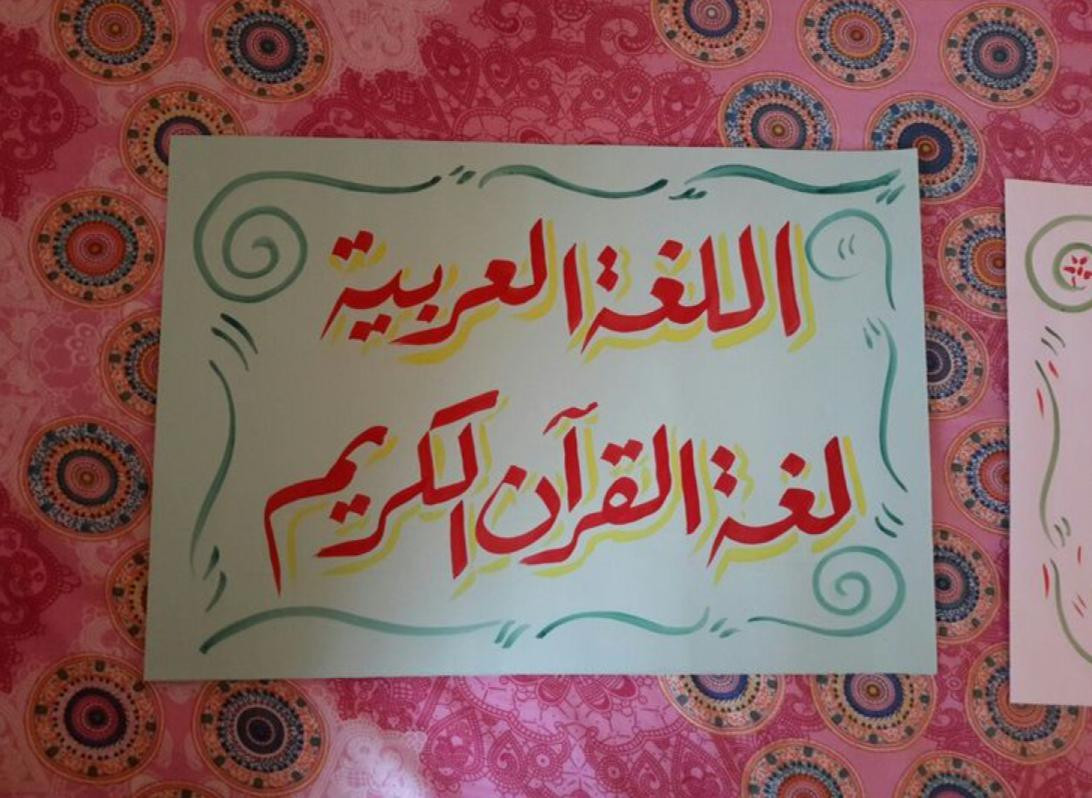 اللغة العربية
لغة القرآن الكريم